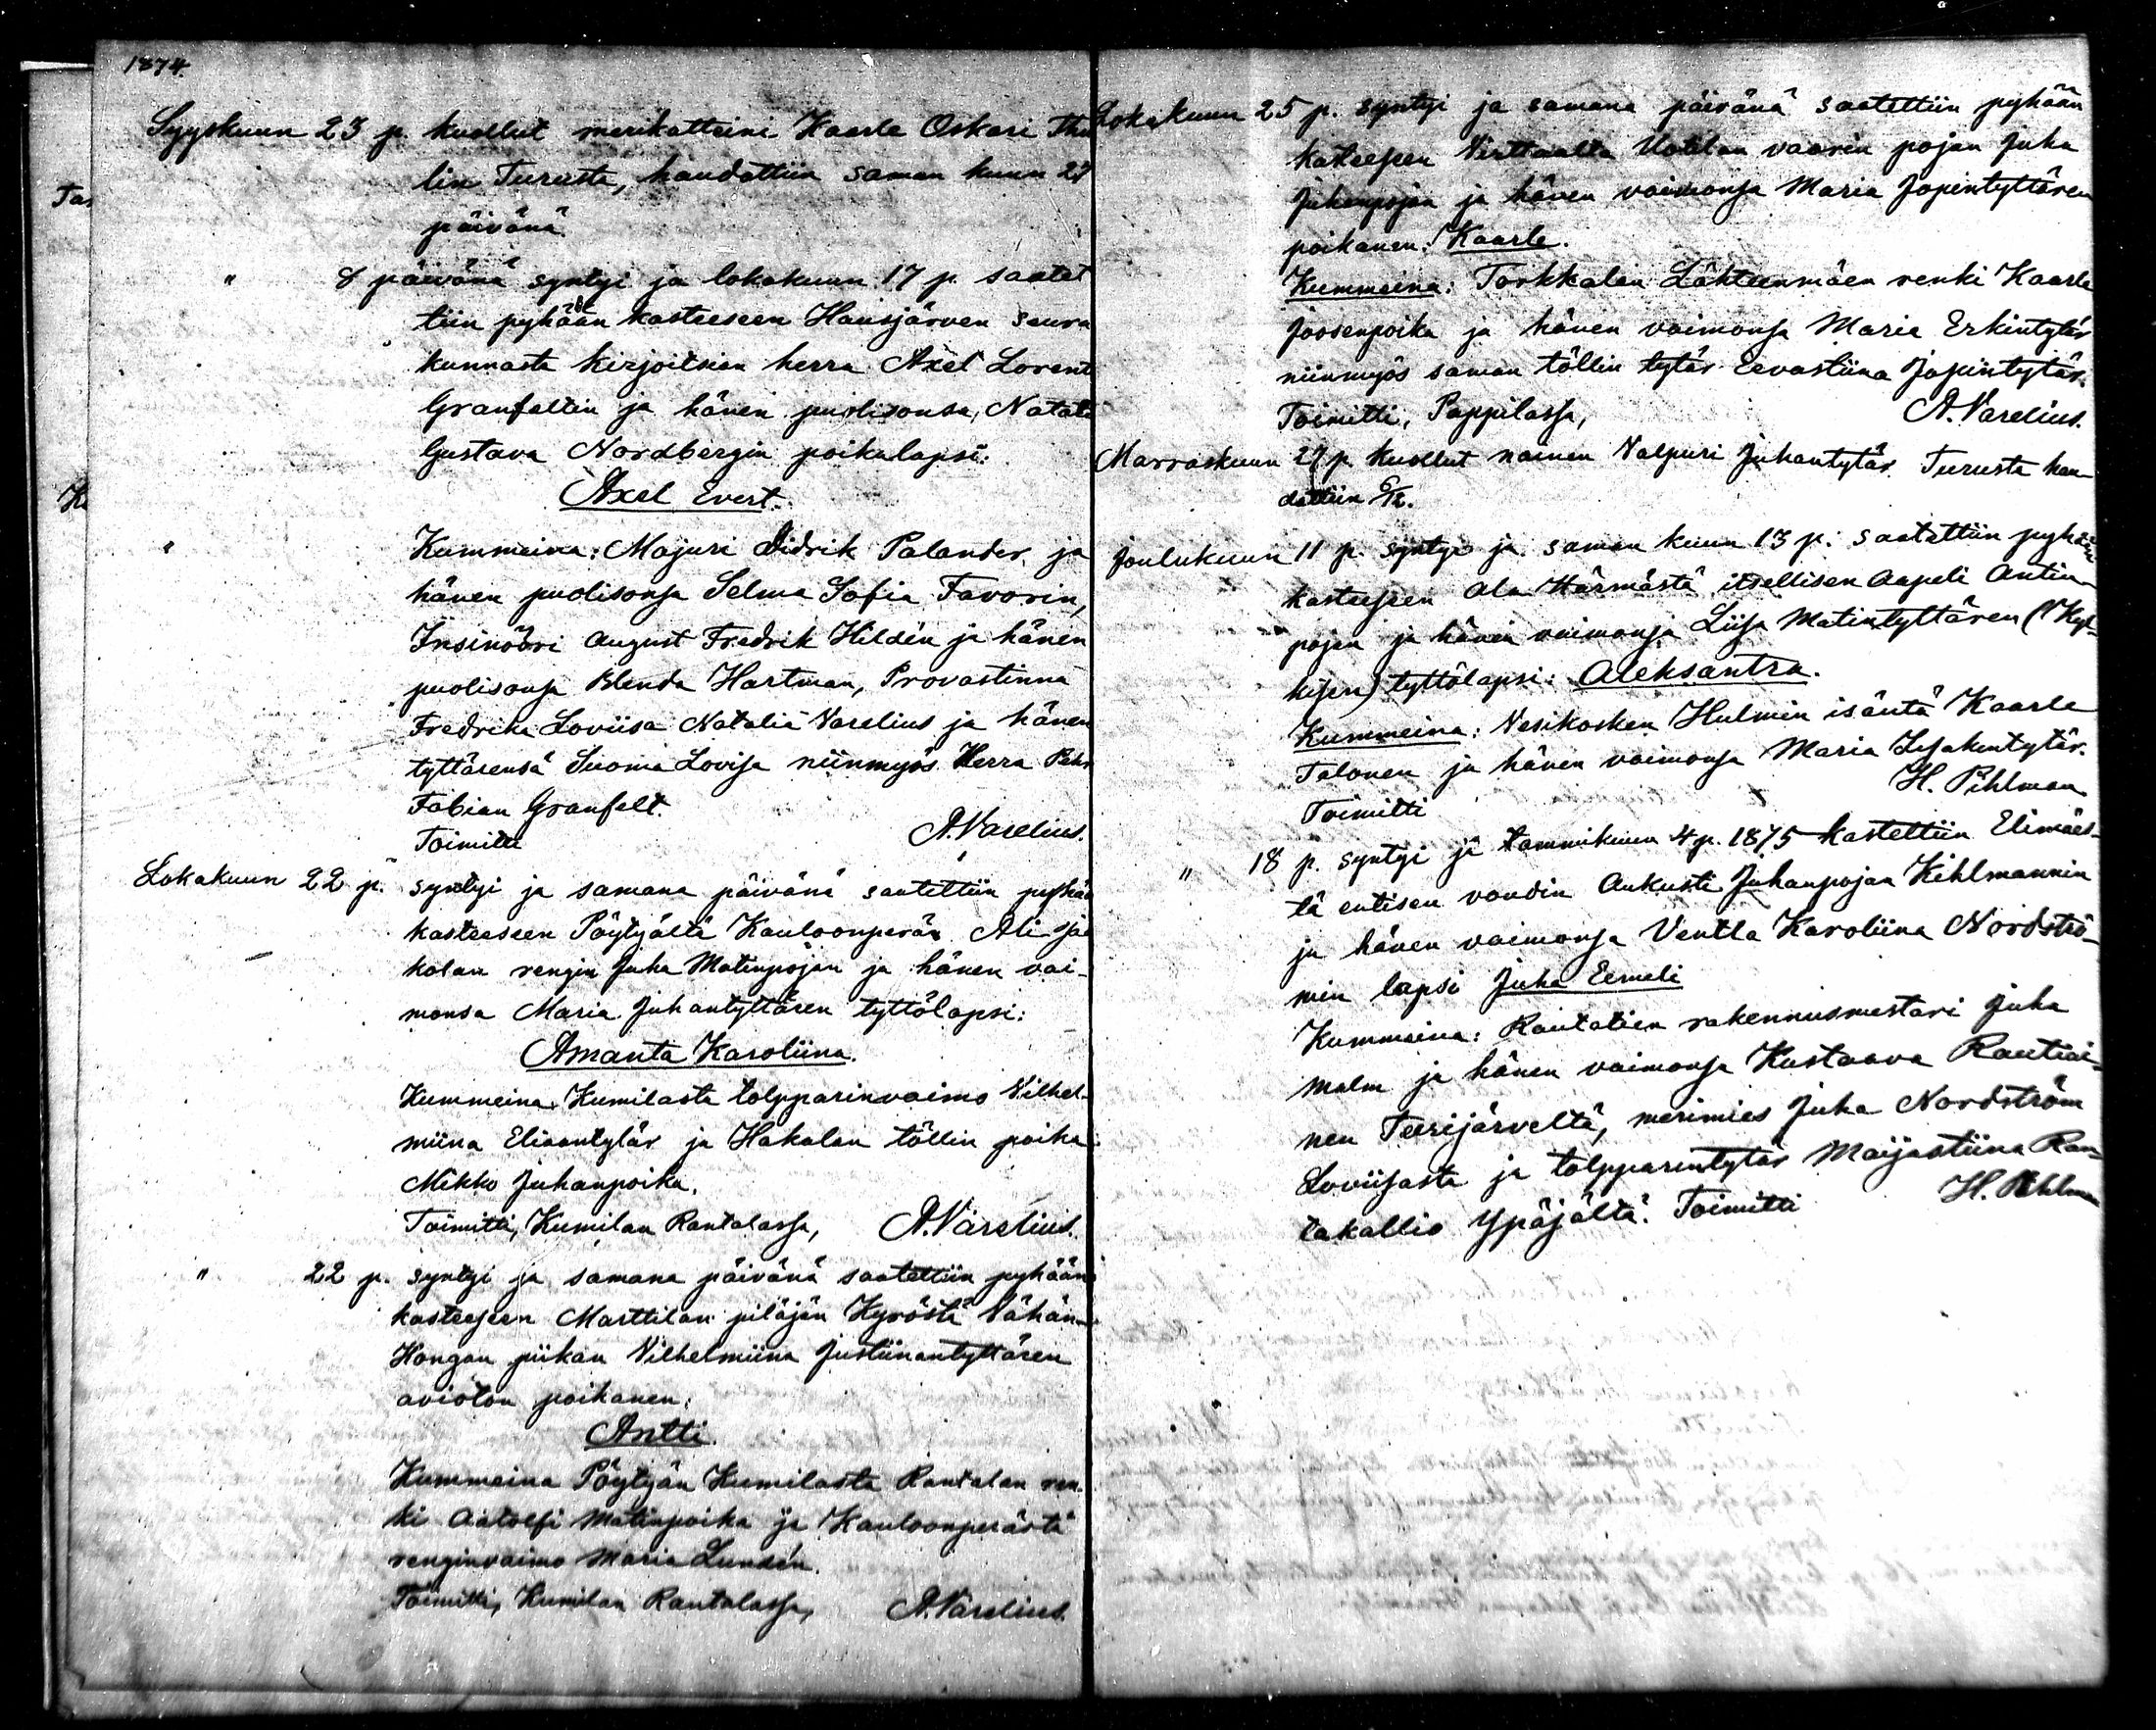 1874.
Syyskuun 23 p. kuollut merikatteini Kaarle Oskari Thu
lin Turusta, haudattiin saman kuun 27
päivänä
" 8 päivänä syntyi ja lokakuun 17 p. saatet
tiin pyhään kasteeseen Hausjärven seura
kunnasta kirjoitsian herra Axel Lorent
Granfeltin ja hänen puolisonsa, Natali
Gustava Nordbergin poikalapsi:
Axel Evert.
" Kummeina: Majuri Didrik Palander ja
hänen puolisonsa Selma Sofia Favorin,
Insinööri August Fredrik Hildén ja hänen
puolisonsa Blenda Hartman, Provastinna
Fredrika Loviisa Natalia Varelius ja hänen
tyttärensä Suoma Lovisa niinmyös Herra Pehr
Fabian Granfelt.
Toimitti A. Varelius.
Lokakuun 22 p. syntyi ja samana päivänä saatettiin pyhää
kasteeseen Pöytyältä Kauloonperän Ali Ja
kolan rengin Juha Matinpojan ja hänen vai-
monsa Maria Juhantyttären tyttölapsi:
Amanta Karoliina.
Kummeina Kumilasta tolpparinvaimo Vilhel-
miina Eliaantytär ja Hakalan töllin poika
Mikko Juhanpoika.
Toimitti, Kumilan Rantalassa, A. Varelius.
" 22 p. syntyi ja samana päivänä saatettiin pyhään
kasteeseen Marttilan pitäjän Kyröstä Vähän-
Hongan piikan Vilhelmiina Justiinantyttären
avioton poikanen:
Antti.
Kummeina Pöytyän Kumilasta Rantalan ren-
ki Aatolfi Matinpoika ja Kauloonperästä
renginvaimo Maria Lundén.
Toimitti, Kumilan Rantalassa, A. Varelius.
Lokakuun 25 p. syntyi ja samana päivänä saatettiin pyhään
kasteeseen Virttaalta Uotilan vaarin pojan Juha
Juhanpojan ja hänen vaimonsa Maria Jopintyttären
poikanen: Kaarle.
Kummeina: Torkkalan Lähteenmäen renki Kaarle
Joosenpoika ja hänen vaimonsa Maria Erkintytär
niinmyös saman töllin tytär Eevastiina Jopintytär.
Toimitti, Pappilassa, A. Varelius.
Marraskuun 27 p. kuollut nainen Valpuri Juhantytär Turusta hau-
dattiin 6/12.
Joulukuun 11 p. syntyi ja saman kuun 13 p. saatettiin pyhään
kasteeseen Ala Härmästä itsellisen Aapeli Antin-
pojan ja hänen vaimonsa Liisa Matintyttären (Kyl-
kisen) tyttölapsi: Aleksantra.
Kummeina: Vesikosken Hulmin isäntä Kaarle
Talonen ja hänen vaimonsa Maria Isakintytär.
Toimitti H. Pihlman
" 18 p. syntyi ja tammikuun 4 p. 1875 kastettiin Elimäes-
tä entisen voudin Aukusti Juhanpojan Kihlmannin
ja hänen vaimonsa Ventla Karoliina Nordströ-
min lapsi Juha Eemeli
Kummeina: Rautatien rakennusmestari Juha
Malm ja hänen vaimonsa Kustaava Rautiai-
nen Teerijärveltä, merimies Juha Nordström
Loviisasta ja tolpparintytär Maijastiina Ran-
takallio Ypäjältä. Toimitti H. Pihlman